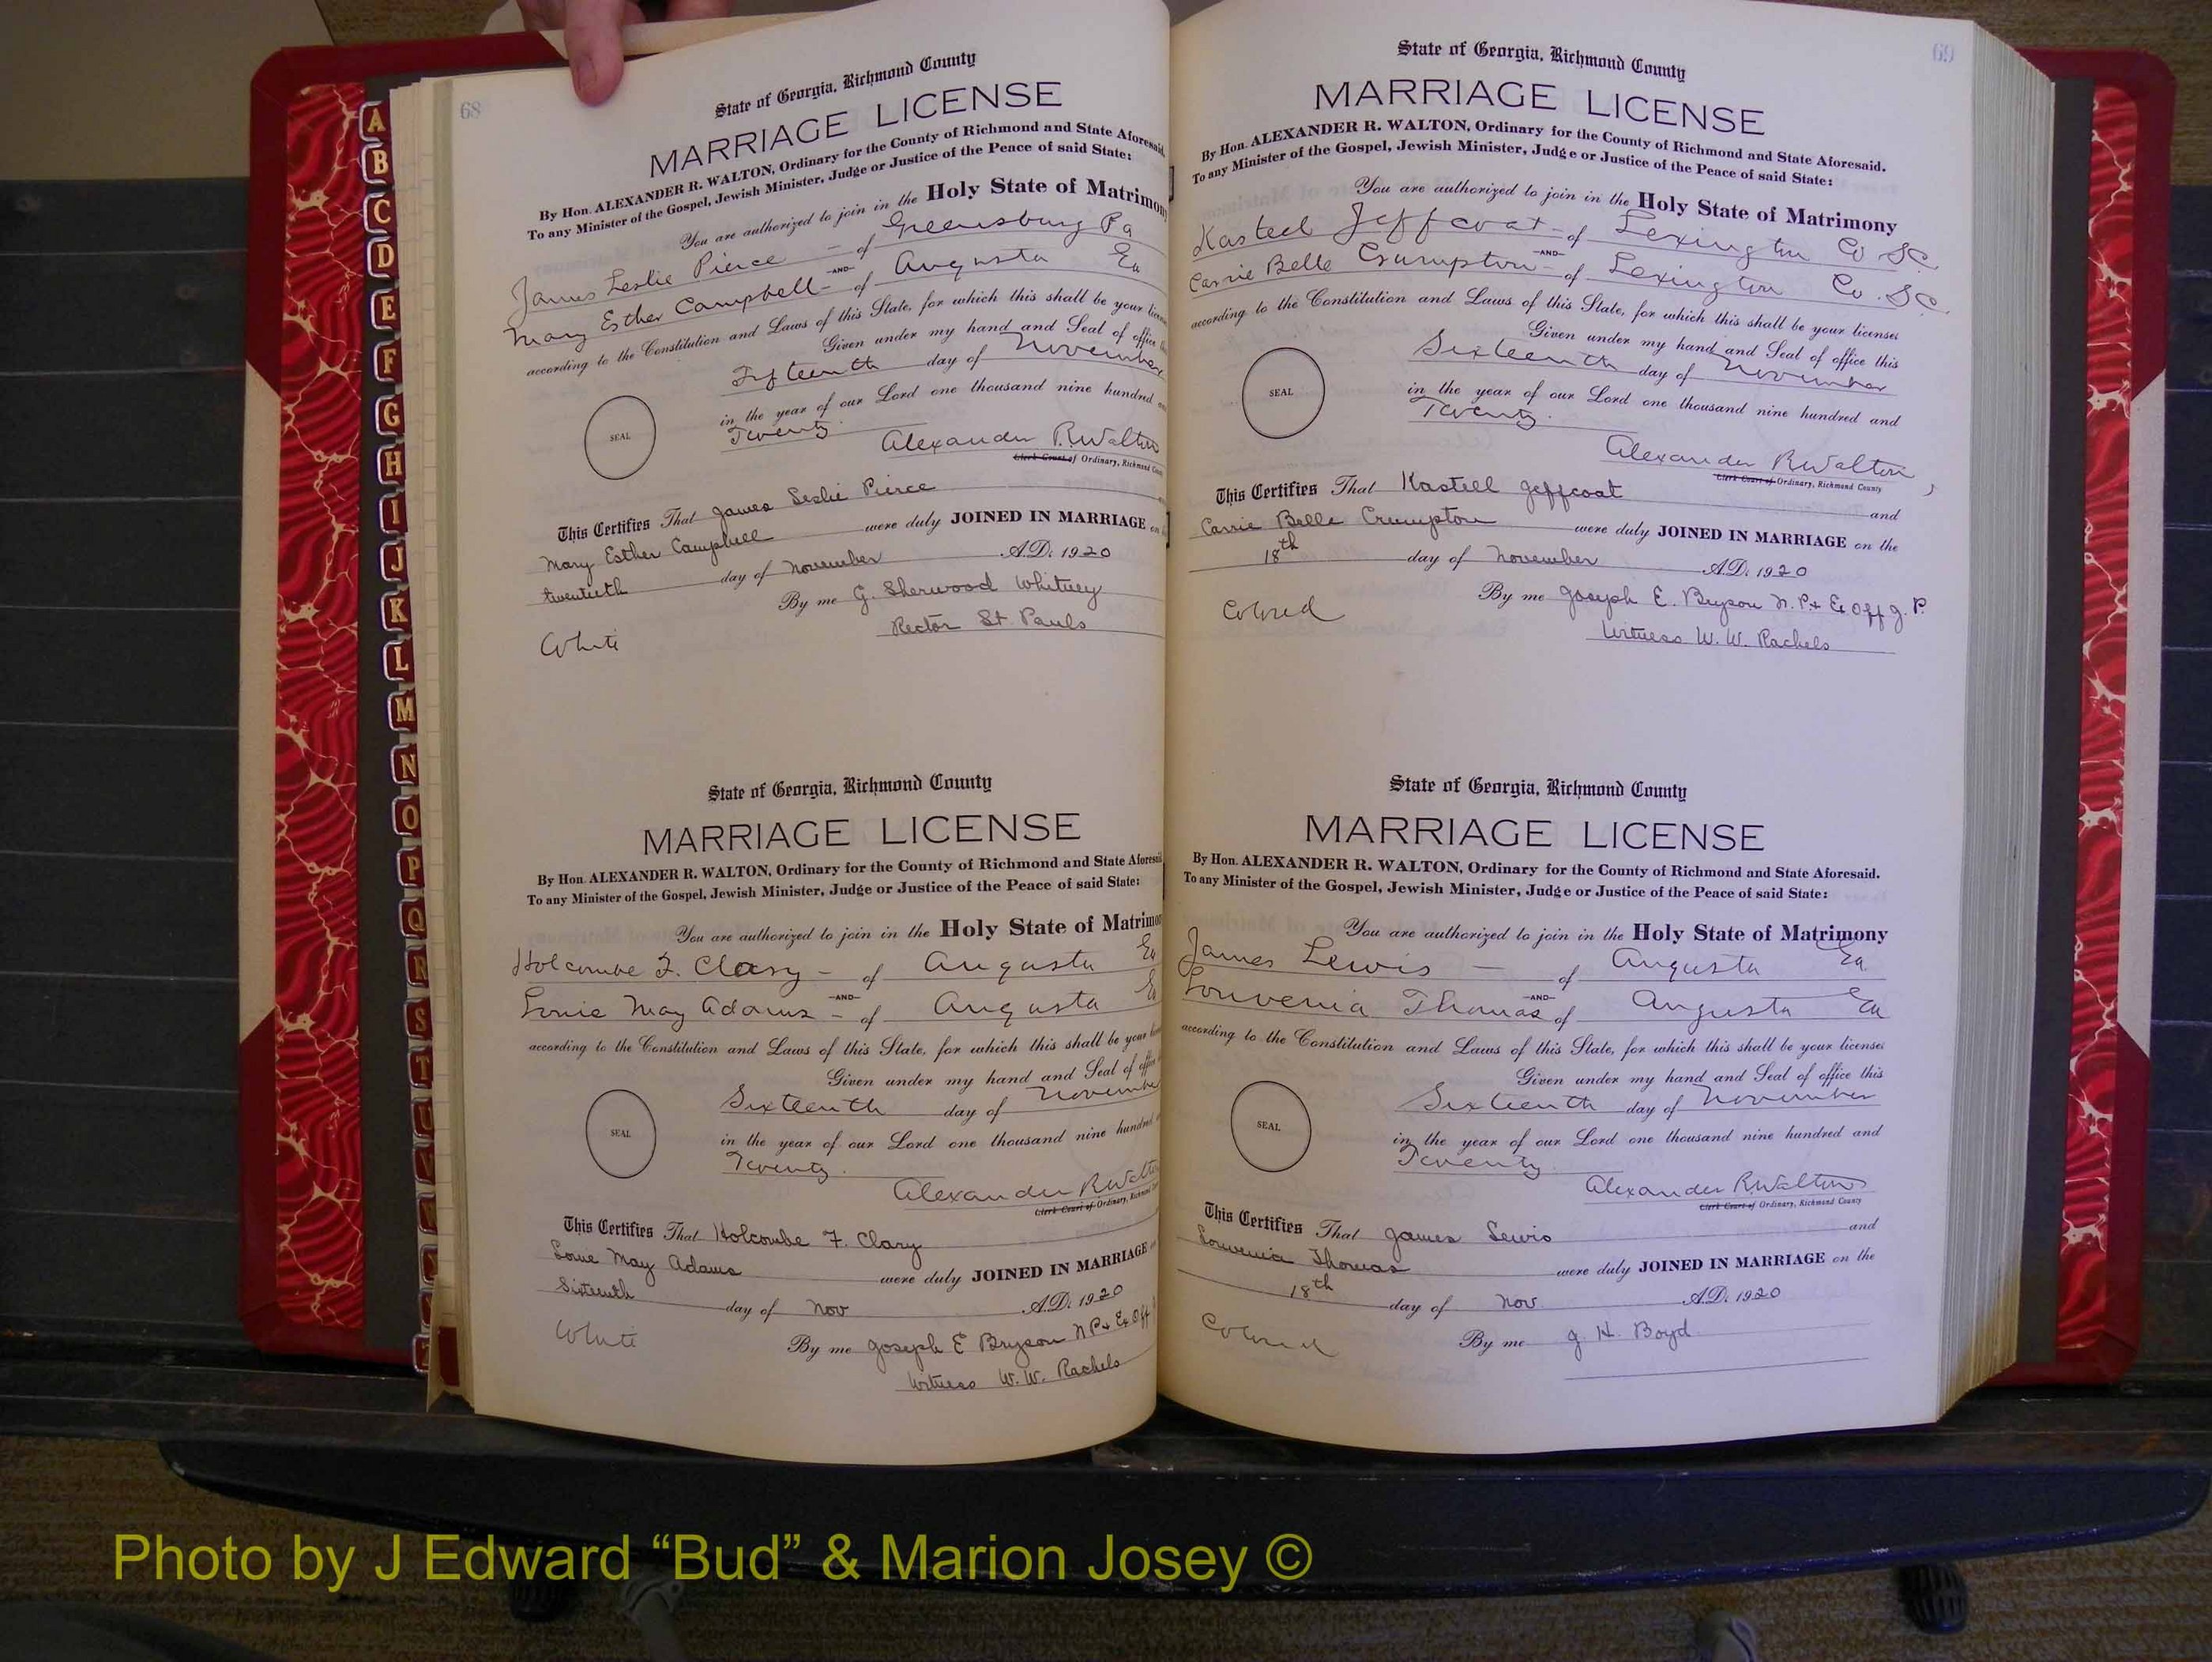 68
State of Georgia, Richmond County
MARRIAGE LICENSE
By Hon. ALEXANDER R. WALTON, Ordinary for the County of Richmond and State Aforesaid.
To any Minister of the Gospel, Jewish Minister, Judge or Justice of the Peace of said State:
You are authorized to join in the Holy State of Matrimony
James Leslie Pierce - of Greensburg Pa
-AND-
Mary Esther Campbell - of Augusta Ga
according to the Constitution and Laws of this State, for which this shall be your licens
Given under my hand and Seal of office th
Fifteenth day of November
SEAL
in the year of our Lord one thousand nine hundred a
Twenty.
Alexander R. Walton
Clerk Court of Ordinary, Richmond Coun
This Certifies That James Leslie Pierce
Mary Esther Campbell were duly JOINED IN MARRIAGE on
twentieth day of November A.D. 1920
By me G. Sherwood Whitney
Rector St. Pauls
White
State of Georgia, Richmond County
MARRIAGE LICENSE
By Hon. ALEXANDER R. WALTON, Ordinary for the County of Richmond and State Aforesaid
To any Minister of the Gospel, Jewish Minister, Judge or Justice of the Peace of said State:
You are authorized to join in the Holy State of Matrimo
Holcombe F. Clary - of Augusta Ga
-AND-
Lonie May Adams - of Augusta Ga
according to the Constitution and Laws of this State, for which this shall be your
Given under my hand and Seal of office
Sixteenth day of November
SEAL
in the year of our Lord one thousand nine hundred
Twenty.
Alexander R Walton
Clerk Court of Ordinary, Richmond
This Certifies That Holcombe F. Clary
Lonie May Adams were duly JOINED IN MARRIAGE
Sixteenth day of Nov A.D. 1920
By me Joseph E Bryson N P & Ex Off
Witness W. W. Rachels
White
69
State of Georgia, Richmond County
MARRIAGE LICENSE
By Hon. ALEXANDER R. WALTON, Ordinary for the County of Richmond and State Aforesaid.
To any Minister of the Gospel, Jewish Minister, Judge or Justice of the Peace of said State:
You are authorized to join in the Holy State of Matrimony
Kasteel Jeffcoat - of Lexington Co SC
-AND-
Carrie Belle Crumpton - of Lexington Co. SC
according to the Constitution and Laws of this State, for which this shall be your licenses
Given under my hand and Seal of office this
Sixteenth day of November
SEAL
in the year of our Lord one thousand nine hundred and
Twenty.
Alexander R Walton
Clerk Court of Ordinary, Richmond County
This Certifies That Kastell Jeffcoat and
Carrie Belle Crumpton were duly JOINED IN MARRIAGE on the
18th day of November A.D. 1920
By me Joseph E. Bryson N. P. & Ex Off J. P.
Witness W. W. Rachels
Colored
State of Georgia, Richmond County
MARRIAGE LICENSE
By Hon. ALEXANDER R. WALTON, Ordinary for the County of Richmond and State Aforesaid.
To any Minister of the Gospel, Jewish Minister, Judge or Justice of the Peace of said State:
You are authorized to join in the Holy State of Matrimony
James Lewis - of Augusta Ga.
-AND-
Louvenia Thomas of Augusta Ga
according to the Constitution and Laws of this State, for which this shall be your licenses
Given under my hand and Seal of office this
Sixteenth day of November
SEAL
in the year of our Lord one thousand nine hundred and
Twenty
Alexander R Walton
Clerk Court of Ordinary, Richmond County
This Certifies That James Lewis and
Louvenia Thomas were duly JOINED IN MARRIAGE on the
18th day of Nov. A.D. 1920
By me J. H. Boyd
Colored
A
B
C
D
E
F
G
H
I
J
K
L
M
N
O
P
Q
R
S
T
U
V
Photo by J Edward “Bud” & Marion Josey ©